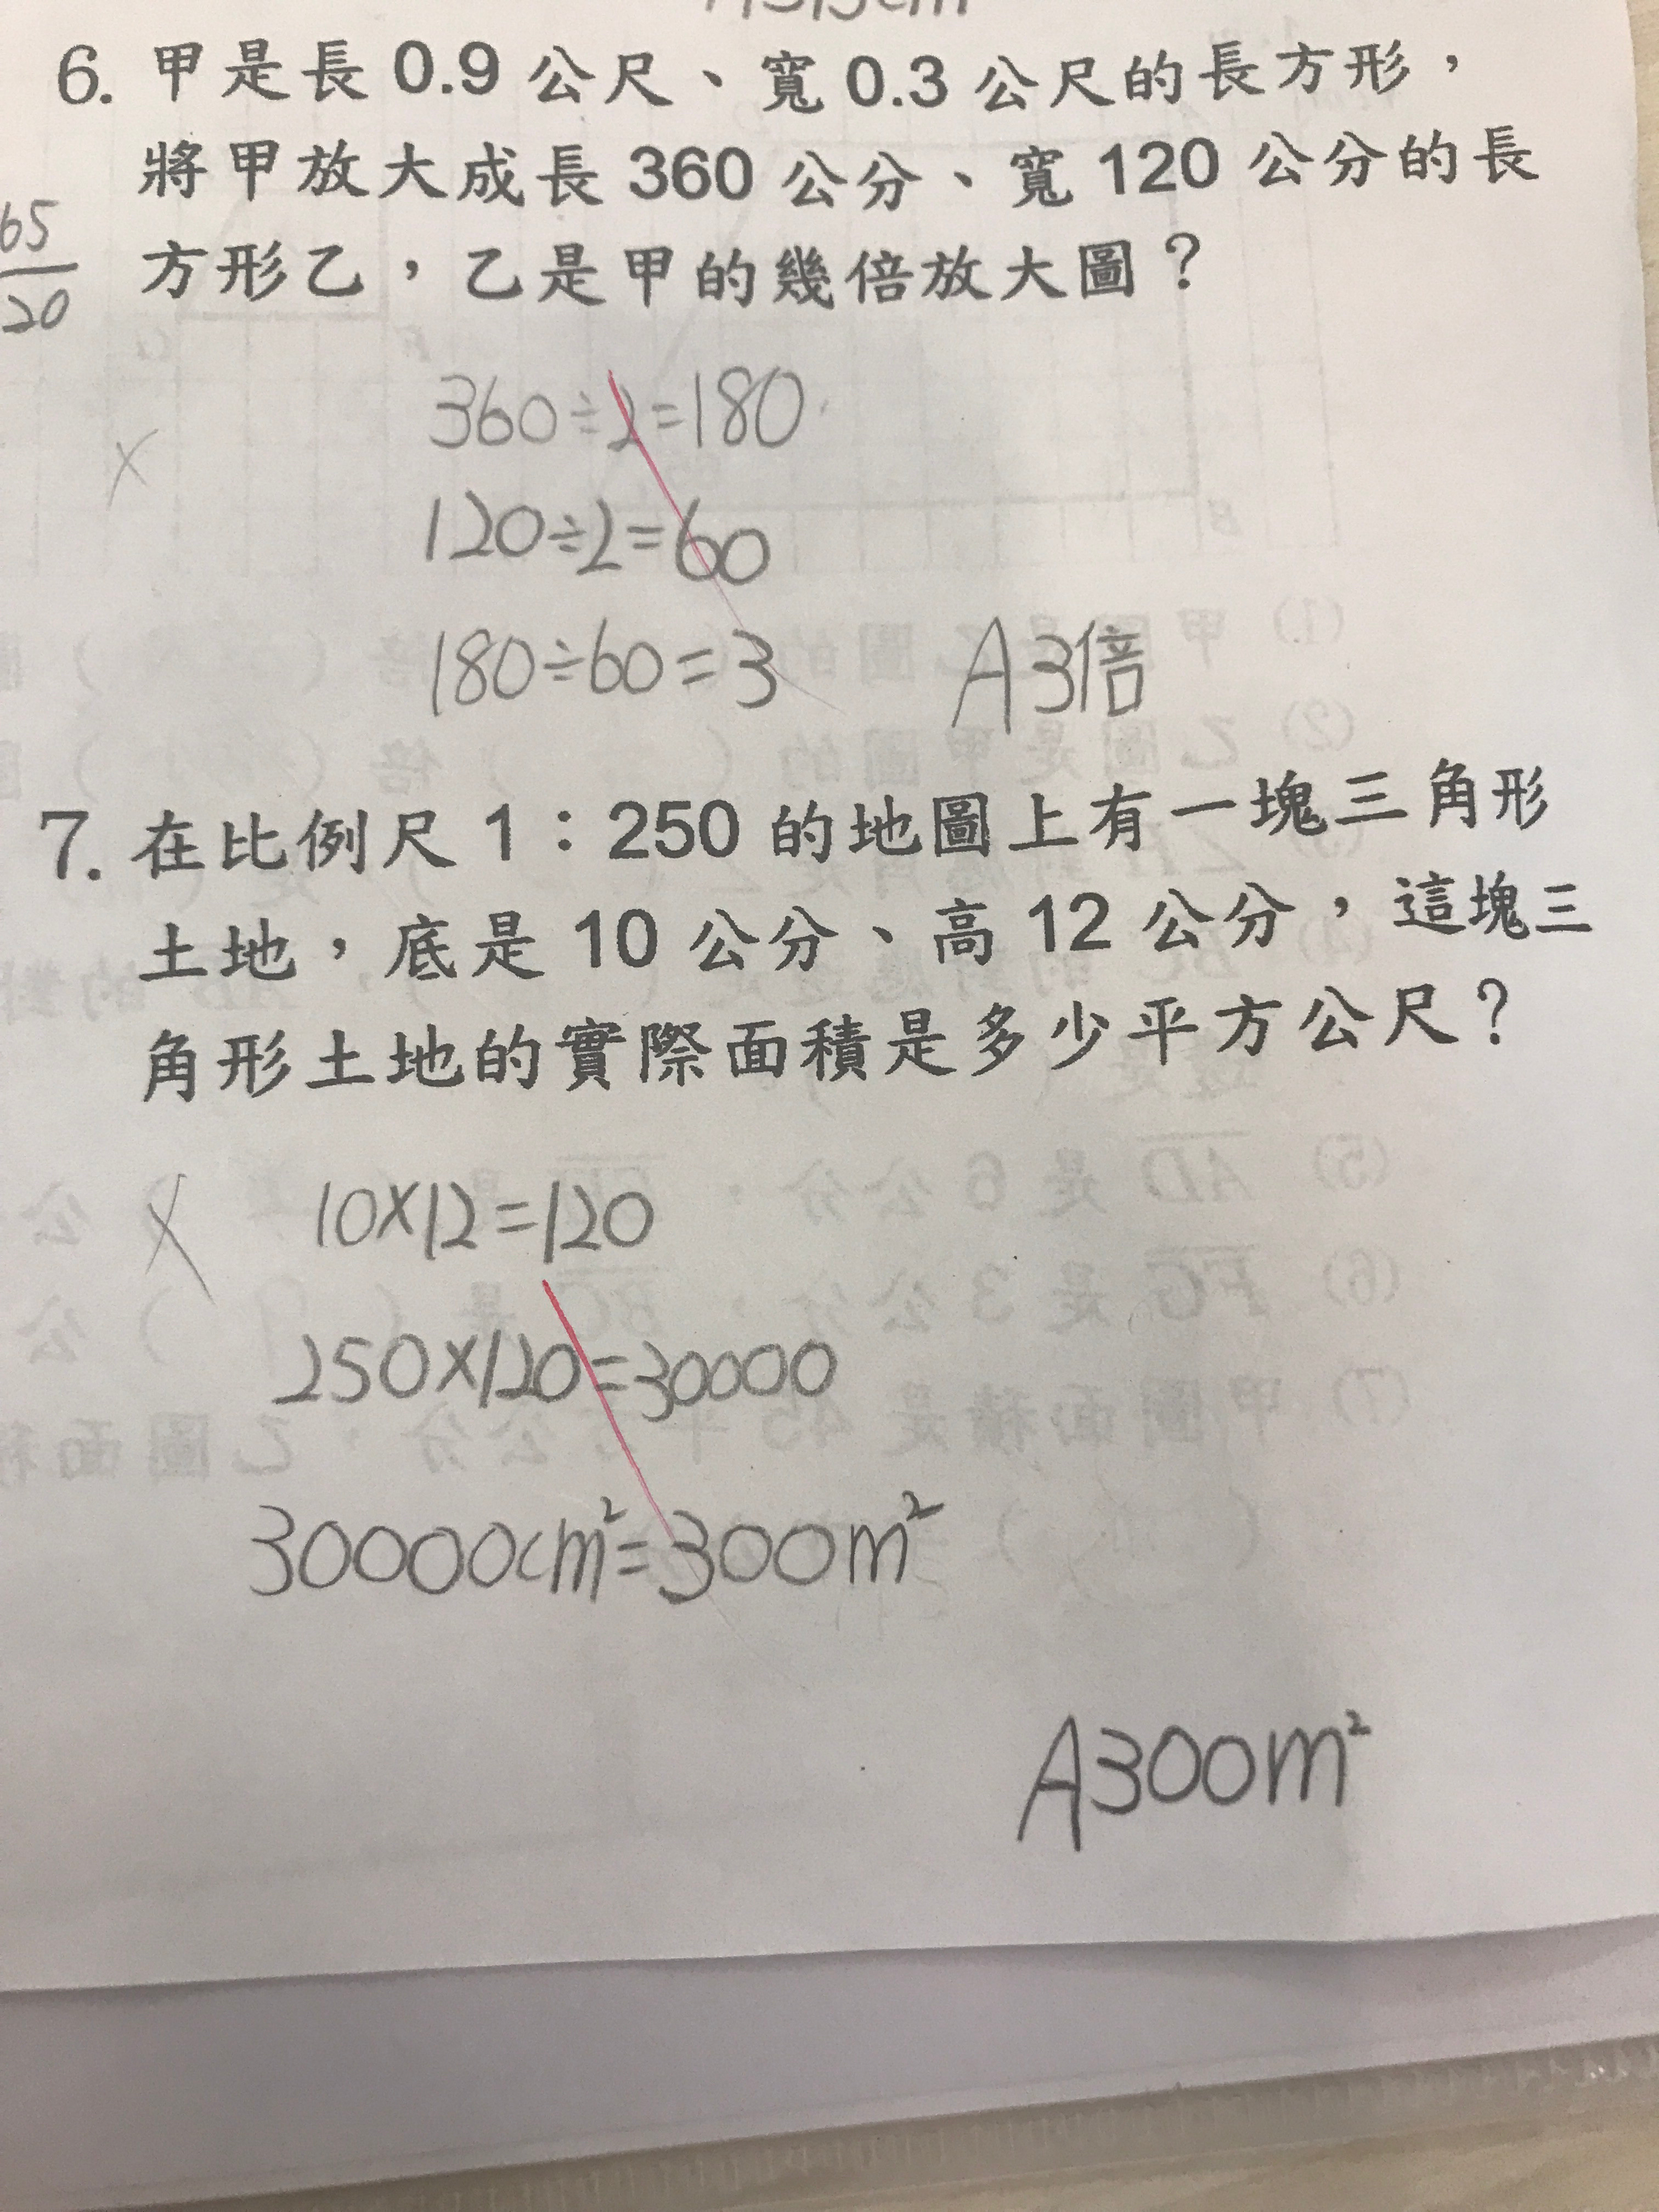 6. 甲是長 0.9 公尺、寬 0.3 公尺的長方形，
將甲放大成長 360 公分、寬 120 公分的長
方形乙，乙是甲的幾倍放大圖？
65
20
360÷2=180
120÷2=60
180÷60=3 A3倍
7. 在比例尺 1：250 的地圖上有一塊三角形
土地，底是 10 公分、高 12 公分，這塊三
角形土地的實際面積是多少平方公尺？
10×12=120
250×120=30000
30000cm²=300m²
A300m²